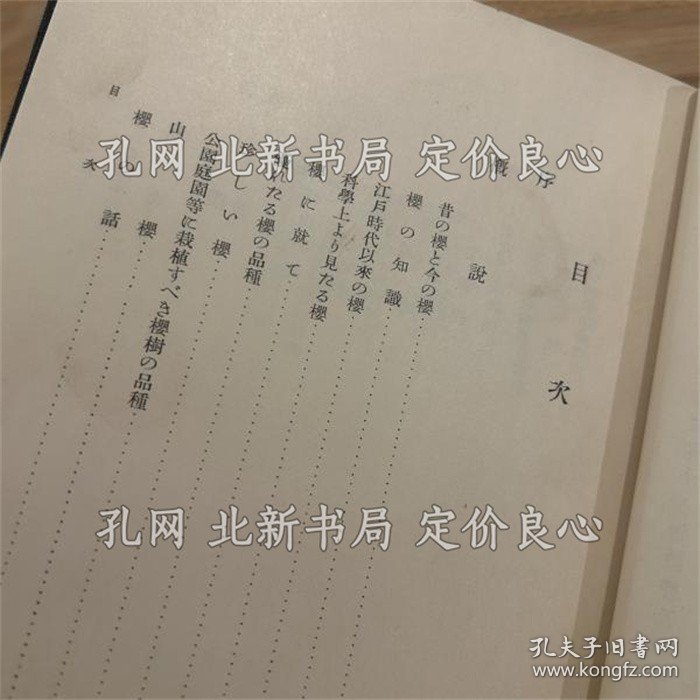 目次
序
概説
昔の櫻と今の櫻
櫻の知識
江戶時代以來の櫻
科學上より見たる櫻
櫻に就て
たる櫻の品種
珍しい櫻
公園庭園等に栽植すべき櫻樹の品種
山櫻
櫻の話
目次
孔网 北新书局 定价良心
孔网 北新书局 定价良心
孔夫子旧书网
www.kongfz.com